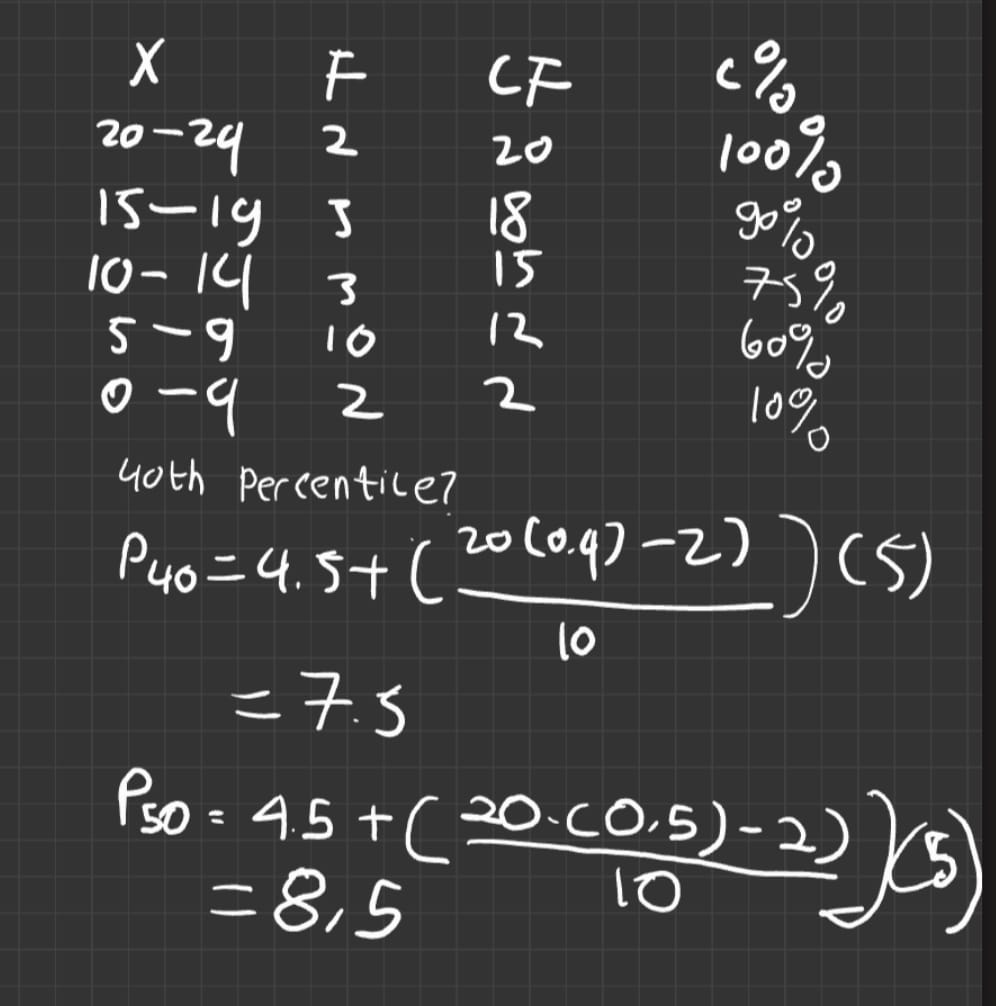 X F CF C%
20-24 2 20 100%
15-19 3 18 90%
10-14 3 15 75%
5-9 10 12 60%
0-4 2 2 10%
40th Percentile?
P40 = 4.5 + ( 20(0.4) - 2) / 10 ) (5)
= 7.5
P50 = 4.5 + ( 20.(0.5) - 2) / 10 ) (5)
= 8,5